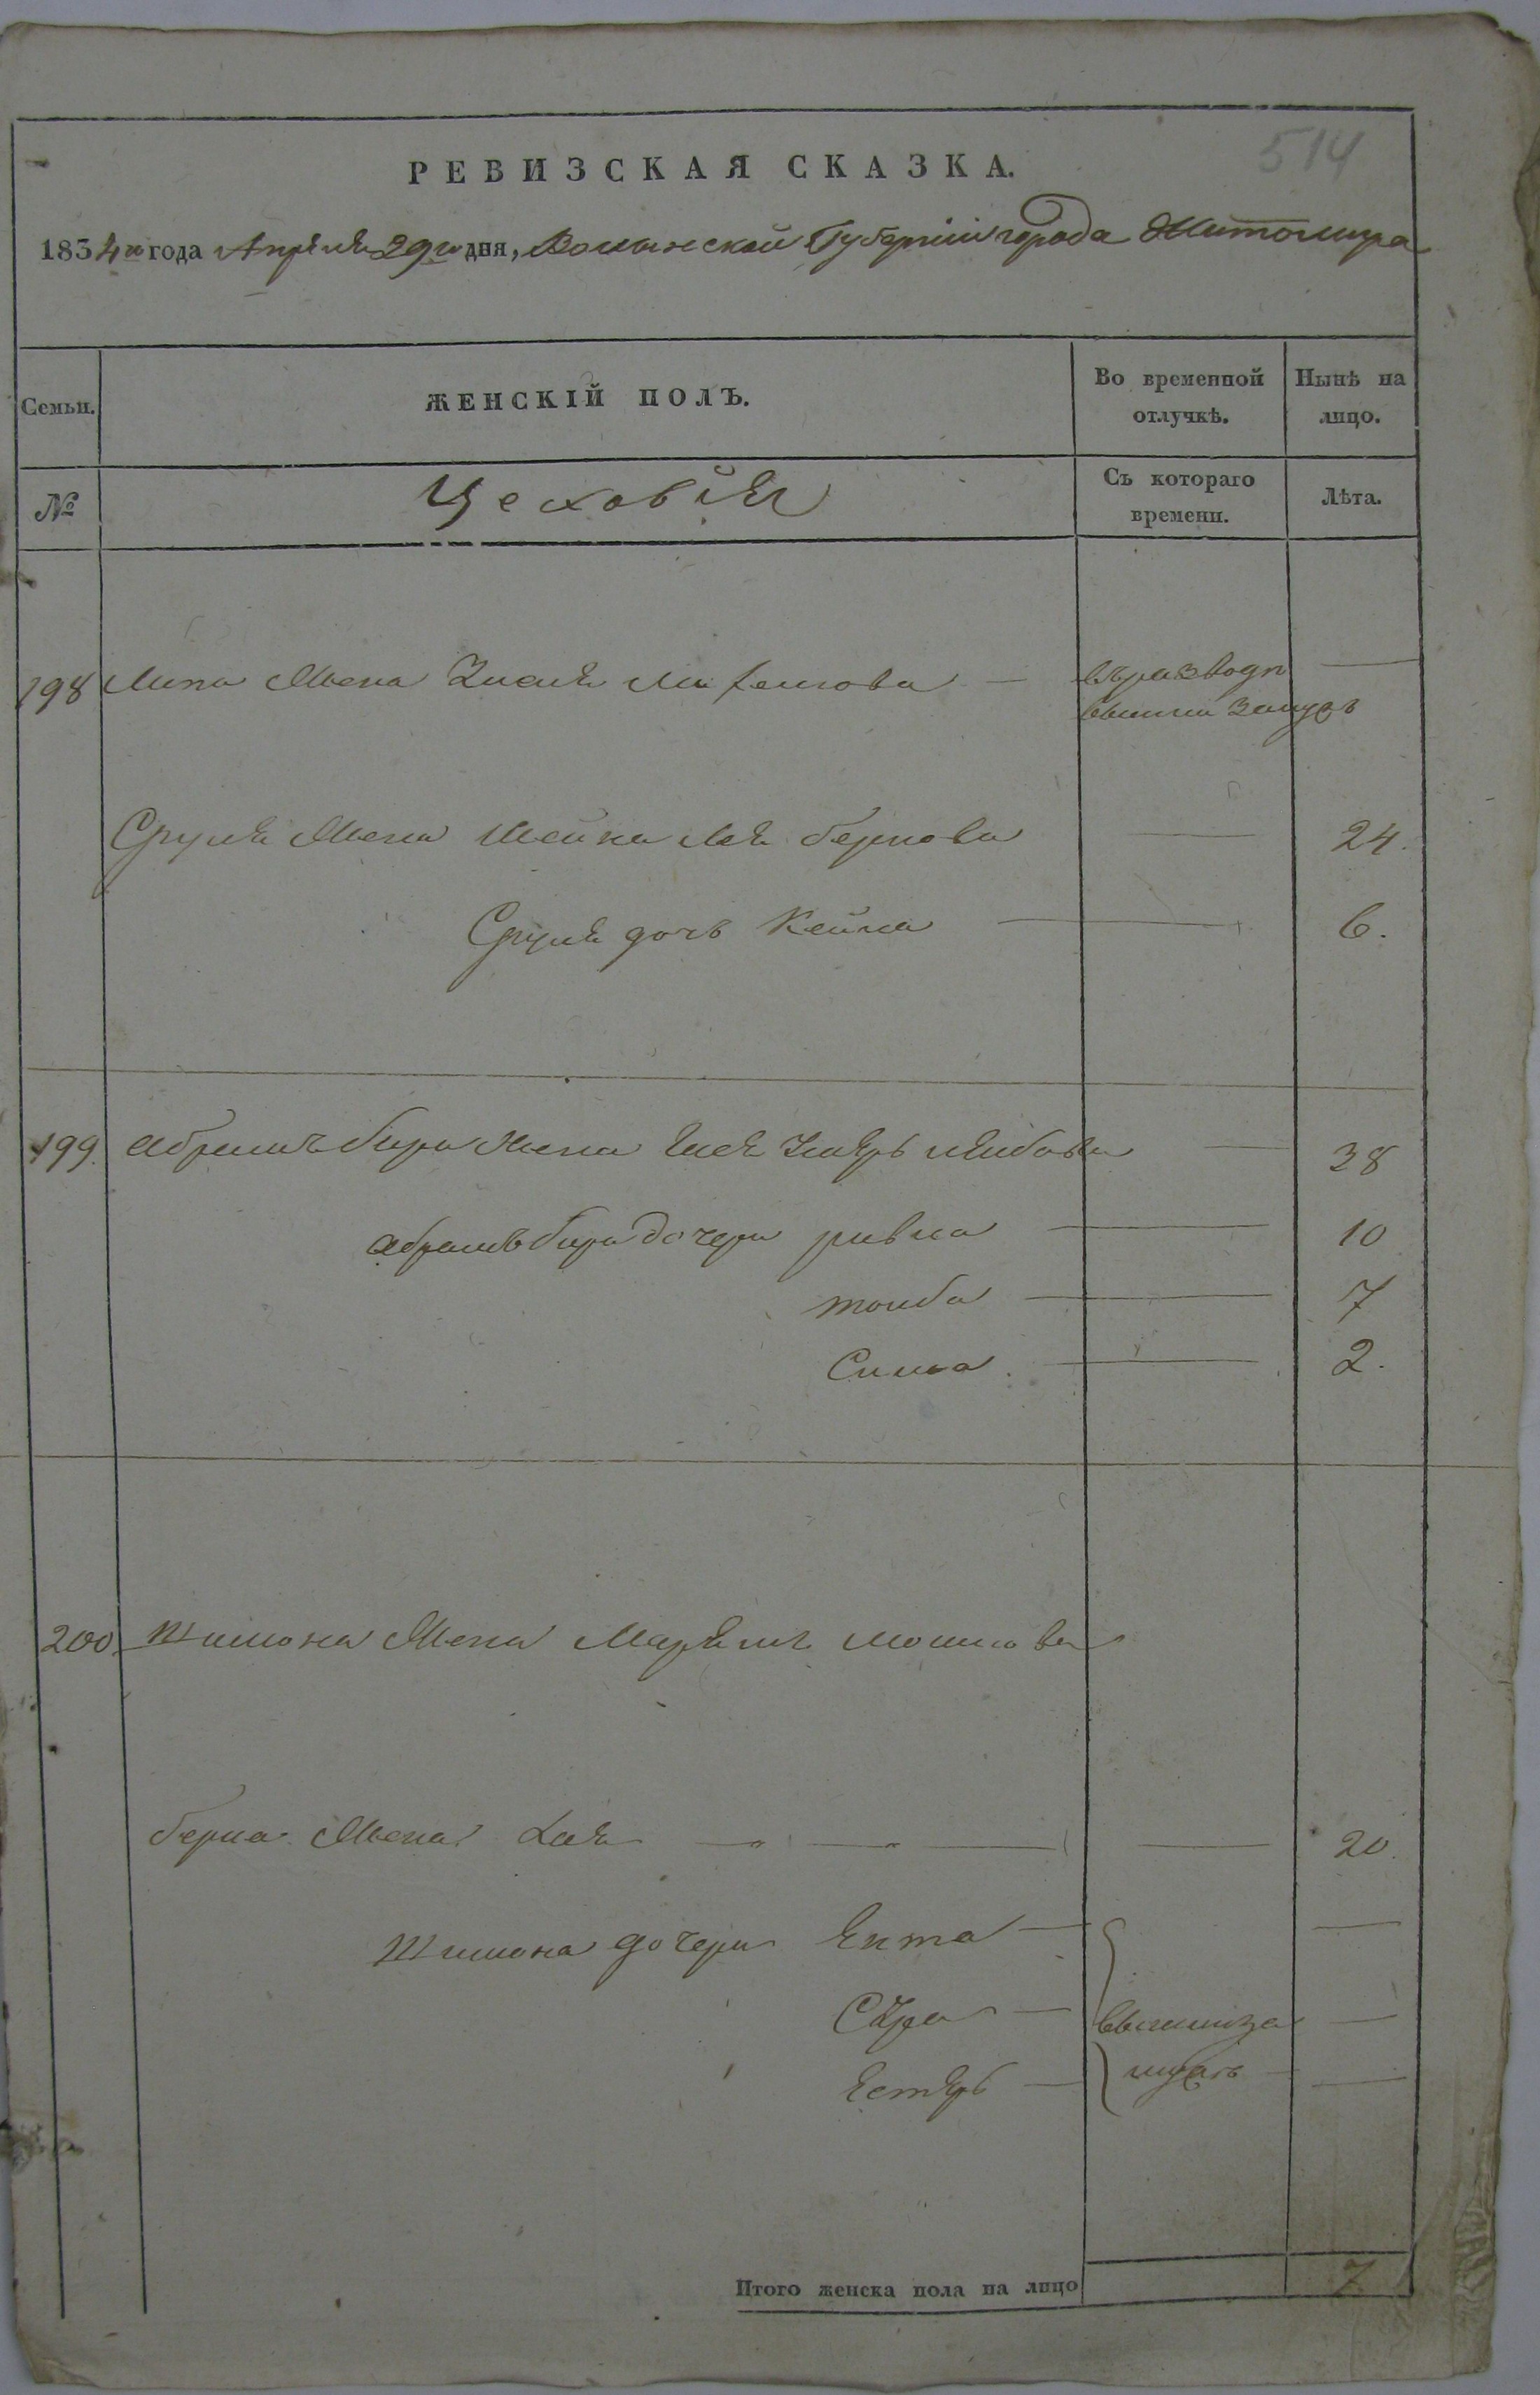 514
РЕВИЗСКАЯ СКАЗКА.
1834го года Апреля 29го дня, Волынской Губернии города Житомира
Семьи. ЖЕНСКІЙ ПОЛЪ. Во временной отлучкѣ. Нынѣ на лицо.
№ Цеховія Съ котораго времени. Лѣта.
198 Липы Жена —
вышла замужъ
Сруля Жена Шейна Лея беркова — 24.
Сруля дочь Кейла — 6.
199. абрамъ бера Жена — 38
абрамъ бера дочери ривка — 10
тоиба — 7
Сима — 2.
200. Шимона Жена Маріямъ мошкова
берка Жена Хая — — — 20.
Шимона дочери Ента — —
Сура — вышли за —
Естеръ — мужъ —
Итого женска пола на лицо 7